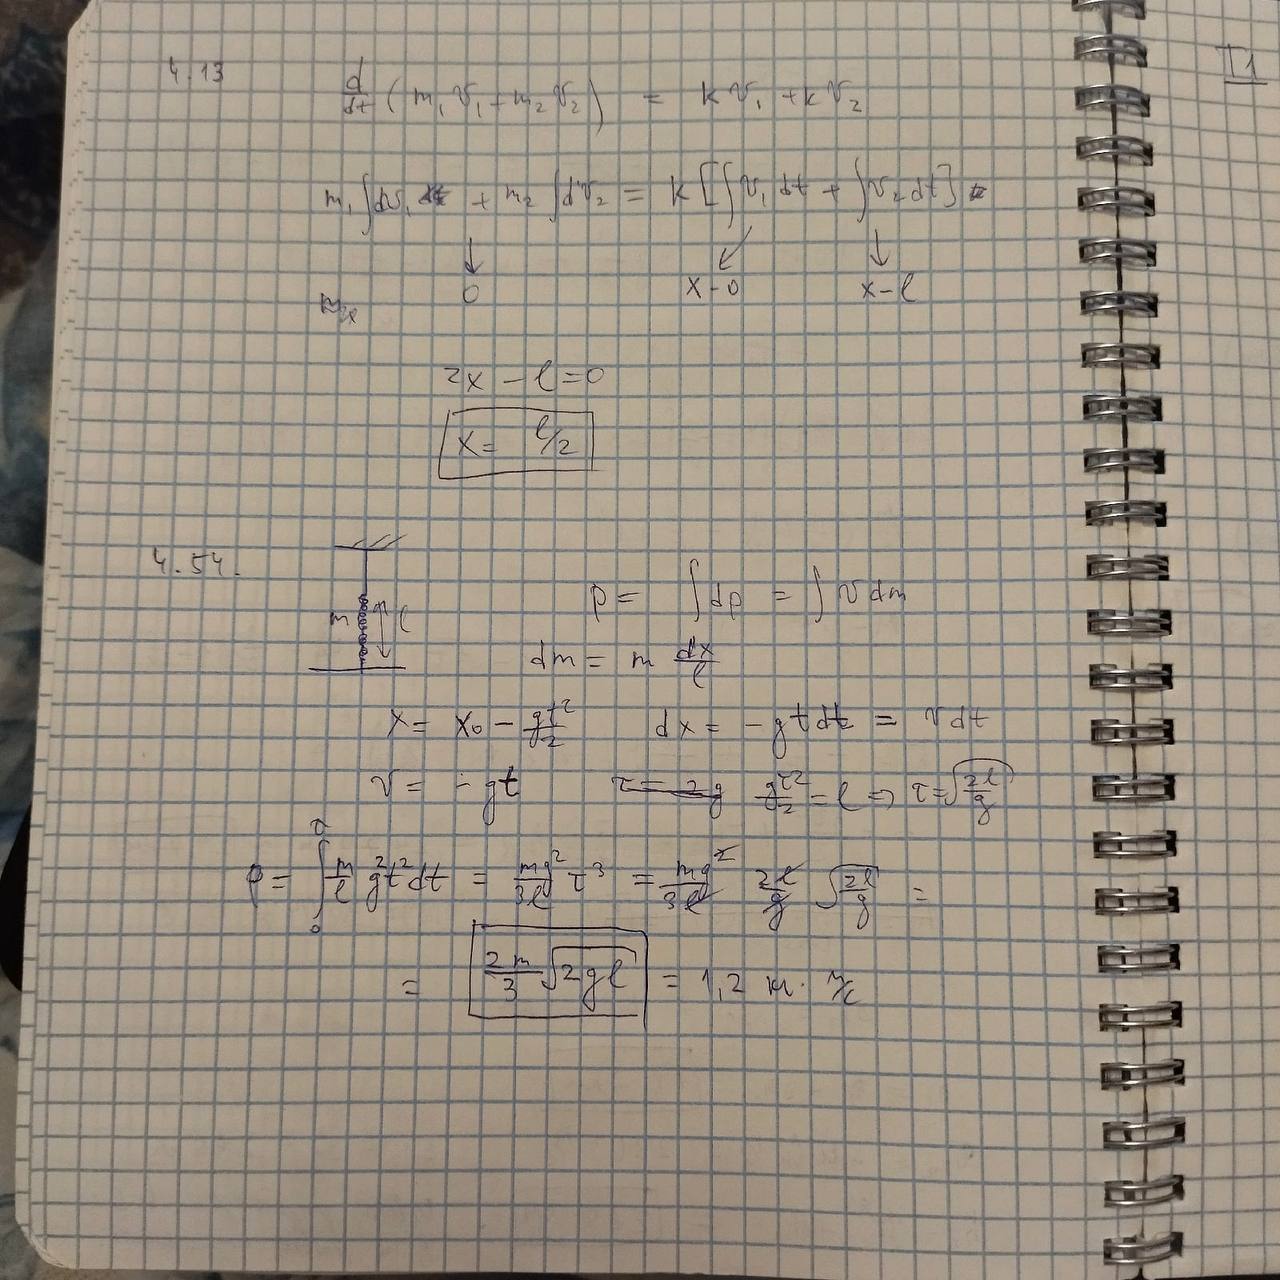 T1
4.13
d/dt (m₁v₁ + m₂v₂) = kv₁ + kv₂
m₁∫dv₁ + m₂∫dv₂ = k[∫v₁dt + ∫v₂dt]
↓ ↙ ↓
0 x-0 x-l
2x - l = 0
x = l/2
4.54.
m l
p = ∫dp = ∫vdm
dm = m dx/l
x = x₀ - gt²/2 dx = -gtdt = vdt
v = -gt τ = 2g gτ²/2 = l ⇒ τ = √(2l/g)
p = ∫₀^τ m/l g²t²dt = mg²/3l τ³ = mg²/3l 2l/g √(2l/g) =
= 2m/3 √(2gl) = 1,2 кг · м/с